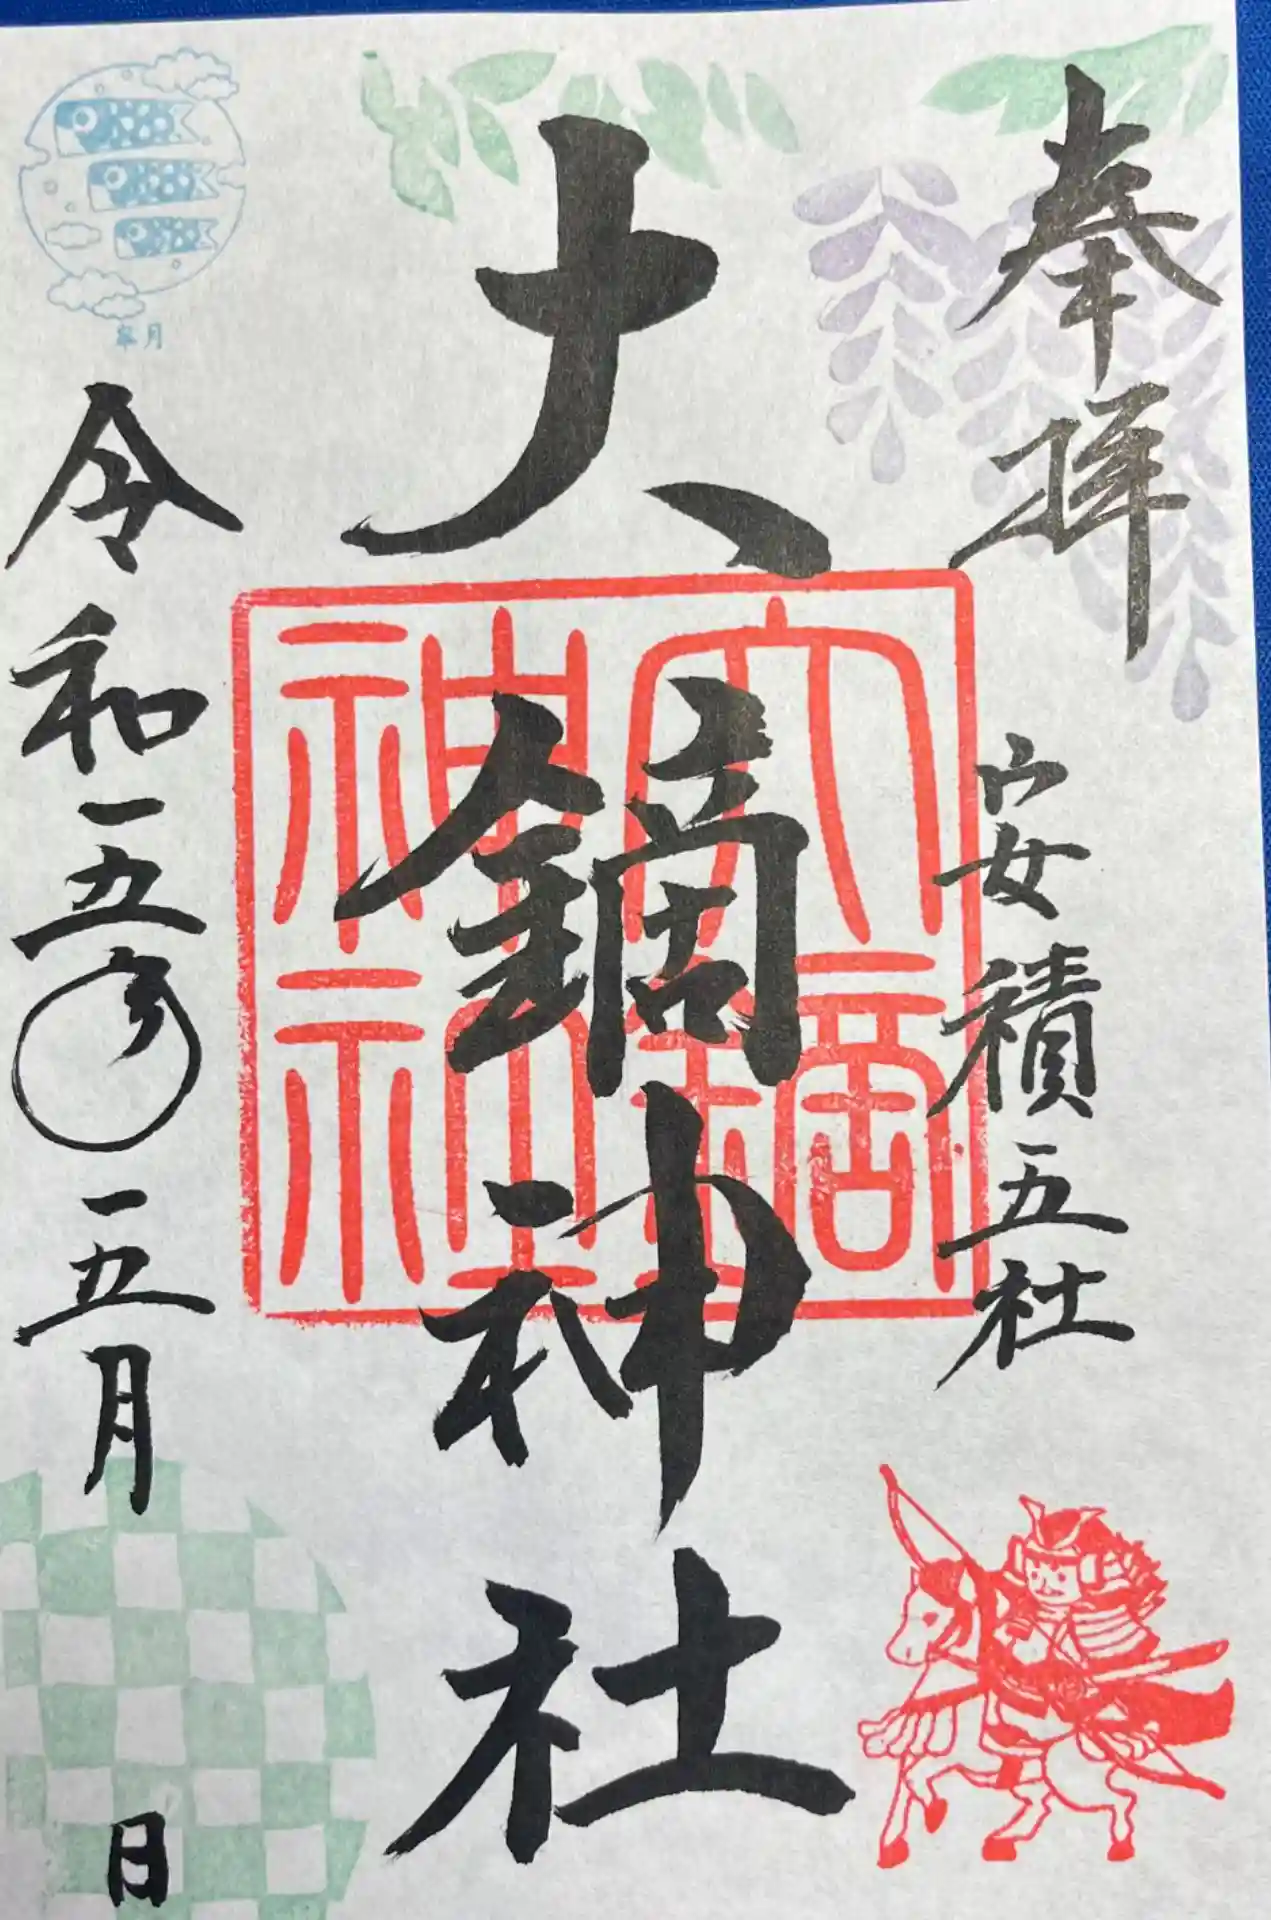 奉拝
安積五社
大鏑神社
大鏑
神社
皐月
令和五年五月 日